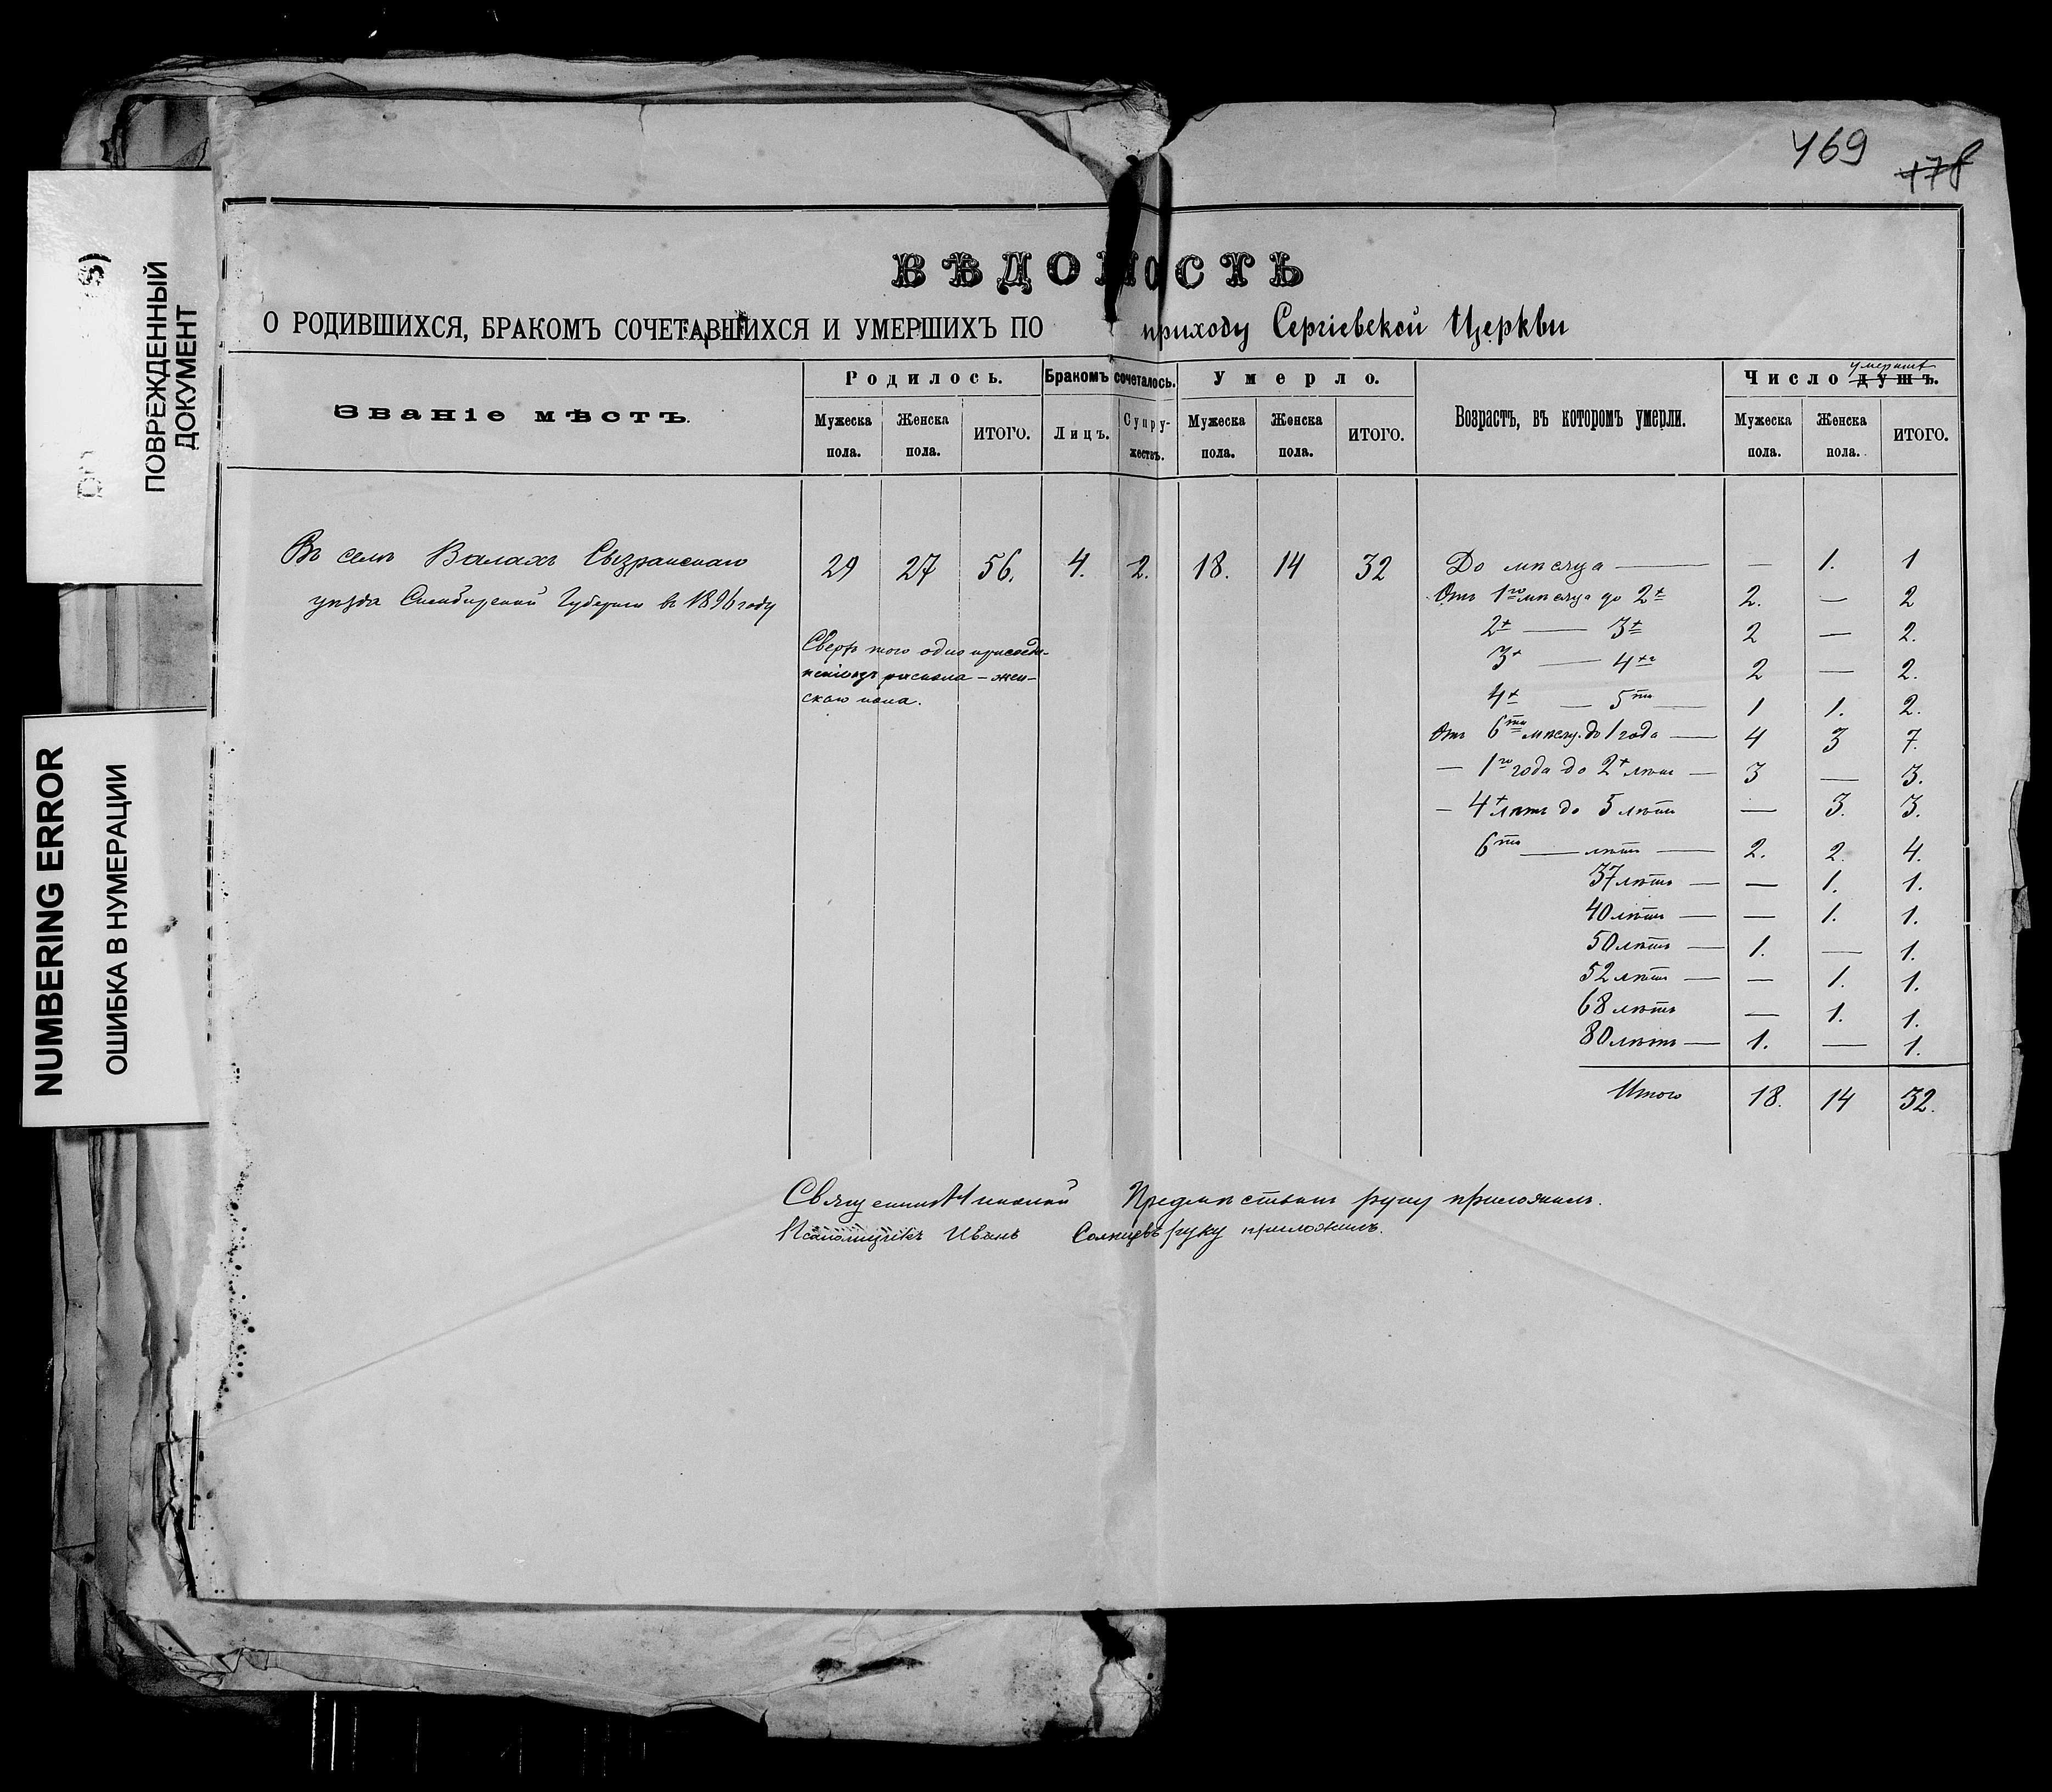 469
478
ВѢДОМОСТЬ
О РОДИВШИХСЯ, БРАКОМЪ СОЧЕТАВШИХСЯ И УМЕРШИХЪ ПО приходу Сергіевской Церкви
Званіе мѣстъ.
Родилось.
Бракомъ сочеталось.
Умерло.
Возрастъ, въ которомъ умерли.
Число душъ.
умершихъ
Мужеска пола.
Женска пола.
ИТОГО.
Лицъ.
Супружествъ.
Мужеска пола.
Женска пола.
ИТОГО.
Мужеска пола.
Женска пола.
ИТОГО.
Въ селѣ Валахъ Сызранскаго 29 27 56. 4. 2. 18. 14 32
уѣзда Симбирской Губерніи въ 1896 году
Сверхъ того одно присоеди-
неніе изъ раскола – жен-
скаго пола.
До мѣсяца — — 1. 1
Отъ 1го мѣсяца до 2х 2. — 2
2х — 3х 2 — 2.
3х — 4хъ 2 — 2.
4х — 5ти — 1 1. 2.
Отъ 6ти мѣсяц. до 1 года — 4 3 7.
— 1го года до 2х лѣтъ — 3 — 3.
— 4х лѣтъ до 5 лѣтъ — 3. 3.
6ти — лѣтъ — 2. 2. 4.
37 лѣтъ — — 1. 1.
40 лѣтъ — — 1. 1.
50 лѣтъ — 1. — 1.
52 лѣтъ — — 1. 1.
68 лѣтъ — 1. 1.
80 лѣтъ — 1. — 1.
Итого 18. 14 32.
Священникъ Николай Предтѣ руку приложилъ.
Псаломщикъ Иванъ Солнцевъ руку приложилъ.
ПОВРЕЖДЕННЫЙ
ДОКУМЕНТ
NUMBERING ERROR
ОШИБКА В НУМЕРАЦИИ